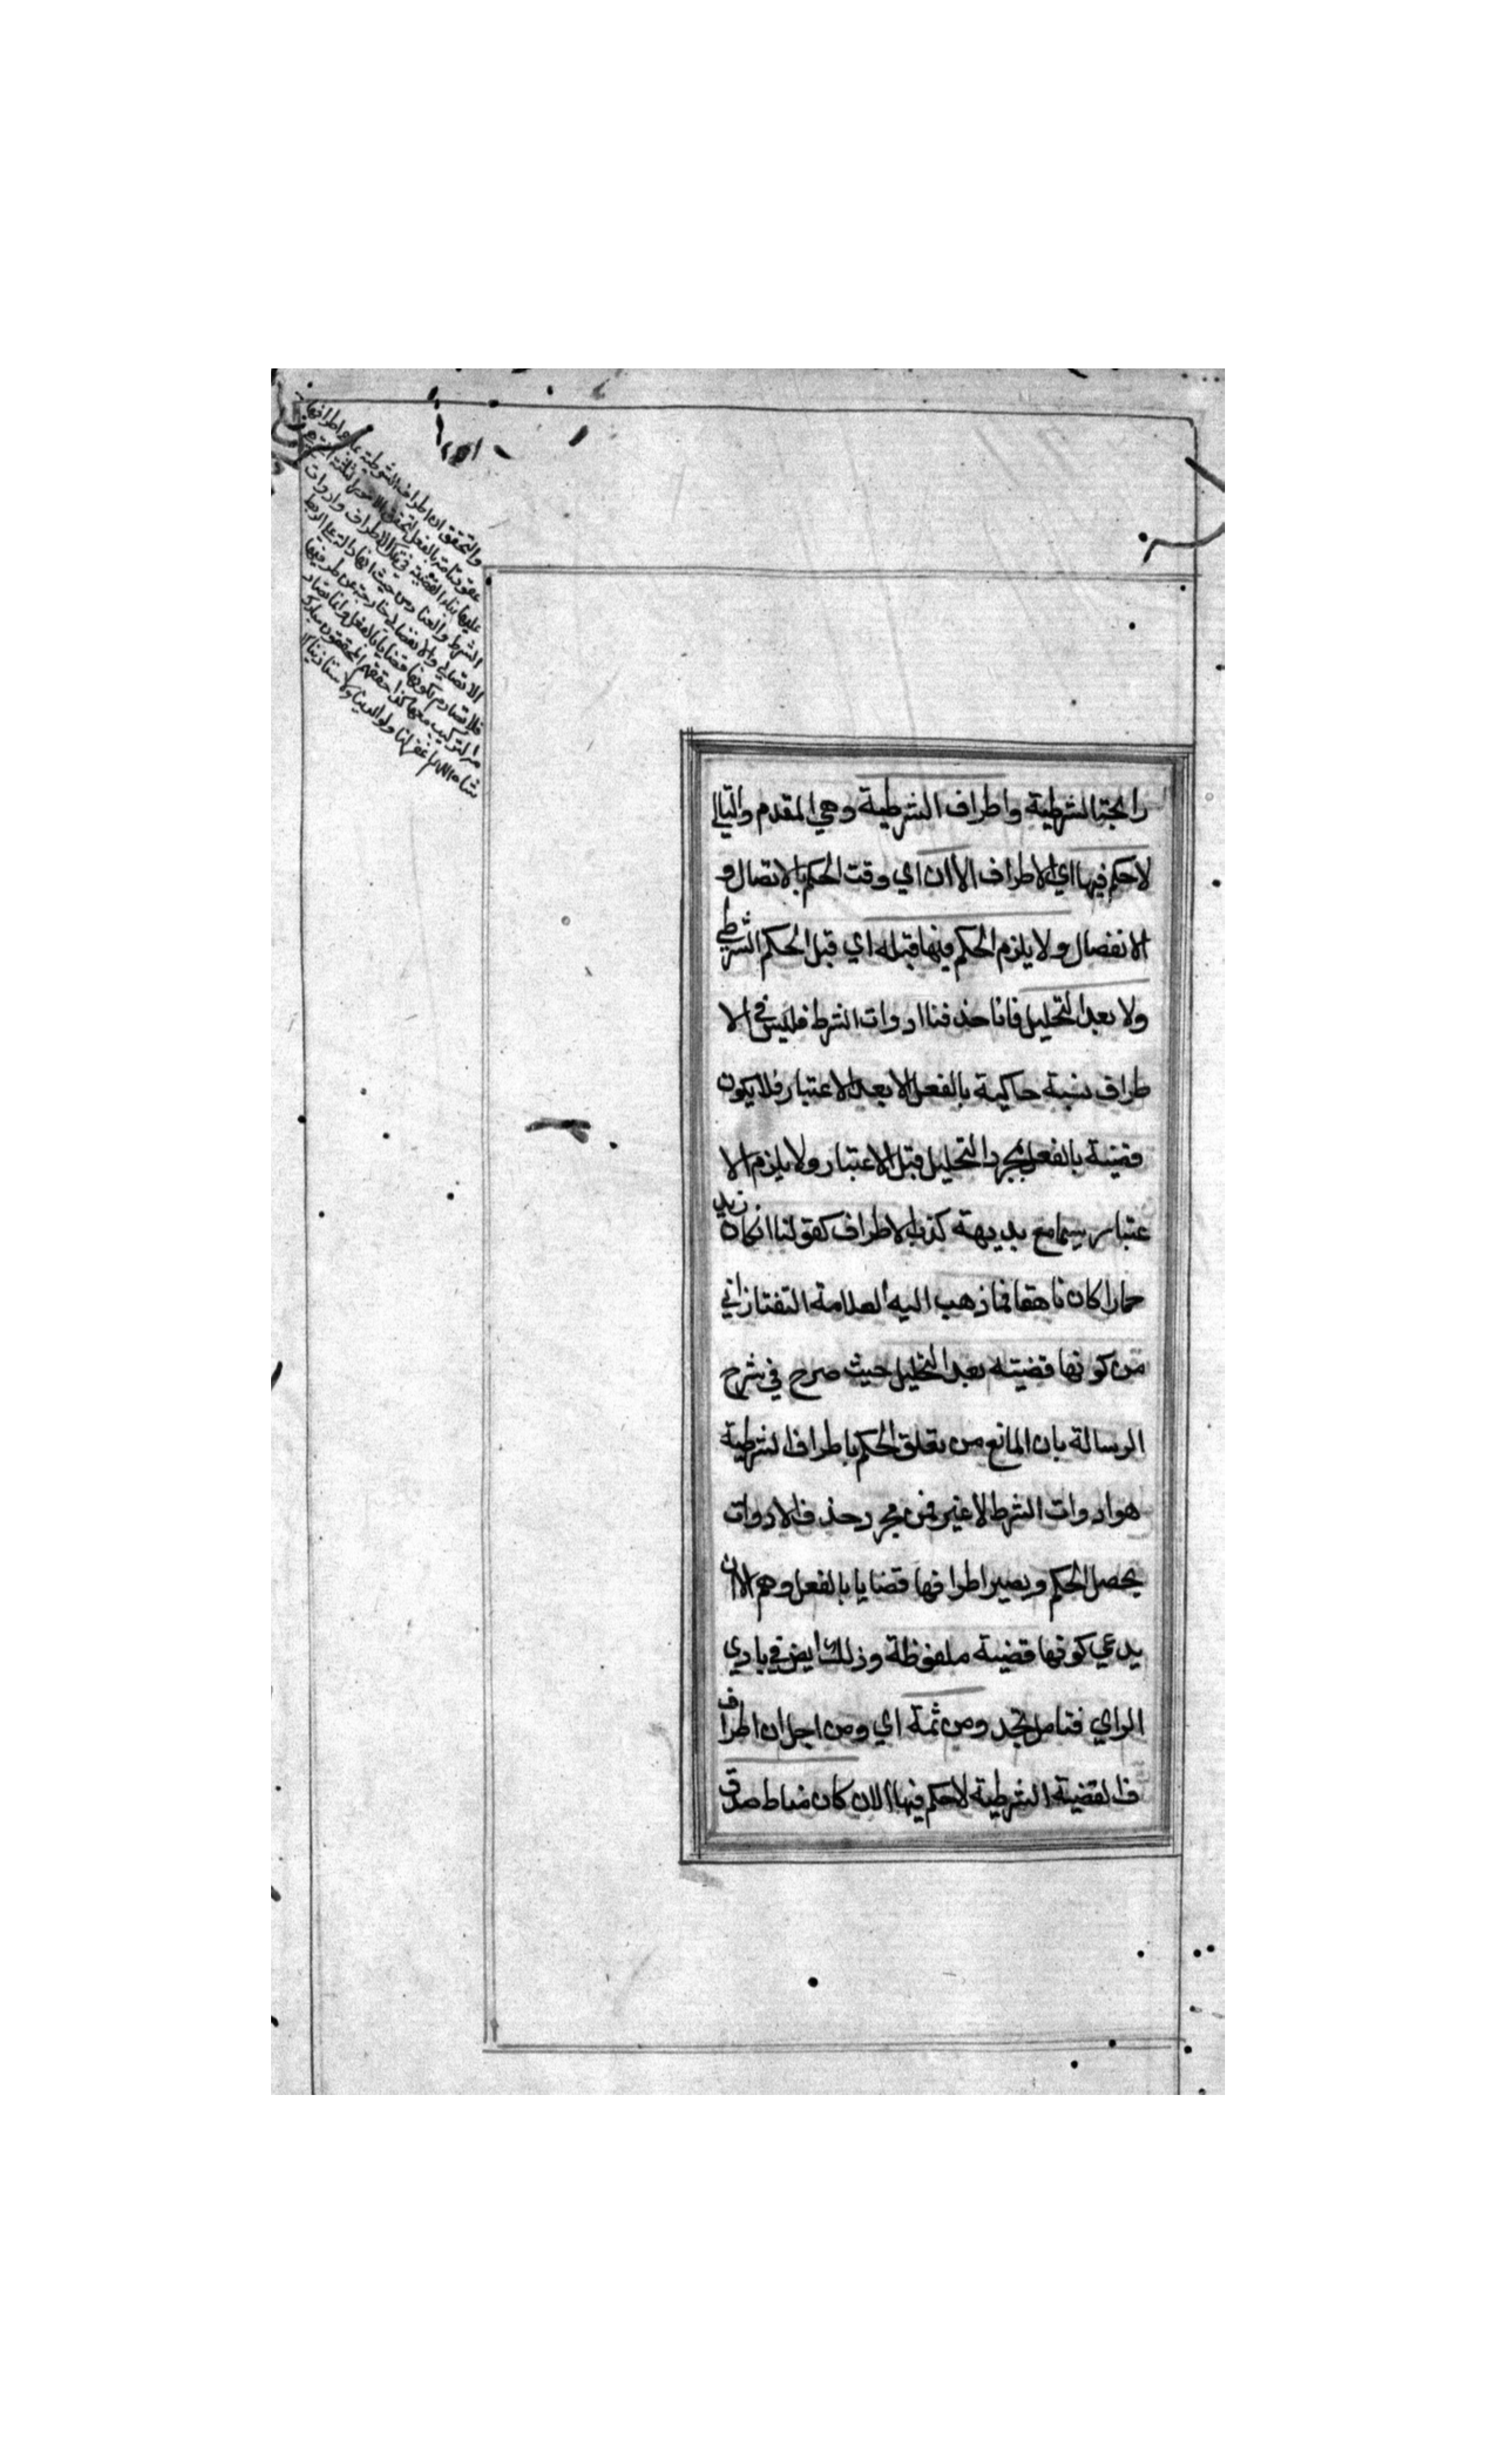 رابحة الشرطية واطراف الشرطية وهي المقدم والتالي
لا حكم فيها اي الاطراف الاان اي وقت الحكم بالاتصال و
الانفصال ولا يلزم الحكم فيها قبله اي قبل الحكم الشرطي
ولا بعد التحليل فانا حذفنا ادوات الشرط فليس في الا
طراف نسبة حاكية بالفعل الا بعد الاعتبار فلا يكون
قضية بالفعل بمجرد التحليل قبل الاعتبار ولا يلزم الا
عتبار سيما مع بديهة كذب الاطراف كقولنا انكان زيد
حمارا كان ناهقا فما ذهب اليه العلامة التفتازاني
من كونها قضيته بعد التحليل حيث صرح في شرح
الرسالة بان المانع من تعلق الحكم باطراف الشرطية
هو ادوات الشرط لا غير فمن مجرد حذف الادوات
يحصل الحكم ويصير اطرافها قضايا بالفعل وهم الاان
يدعي كونها قضية ملفوظة وذلك ايض في بادي
الراي فتامل تجد ومن ثمة اي ومن اجل ان اطراف
ف القضية الشرطية لا حكم فيها الان كان مناط صدق
والتحقيق ان اطراف الشرطية
الشرط والعناد من حيث انها دالة على الربط
الاتصالي والانفصالي خارجة عن طرفيها